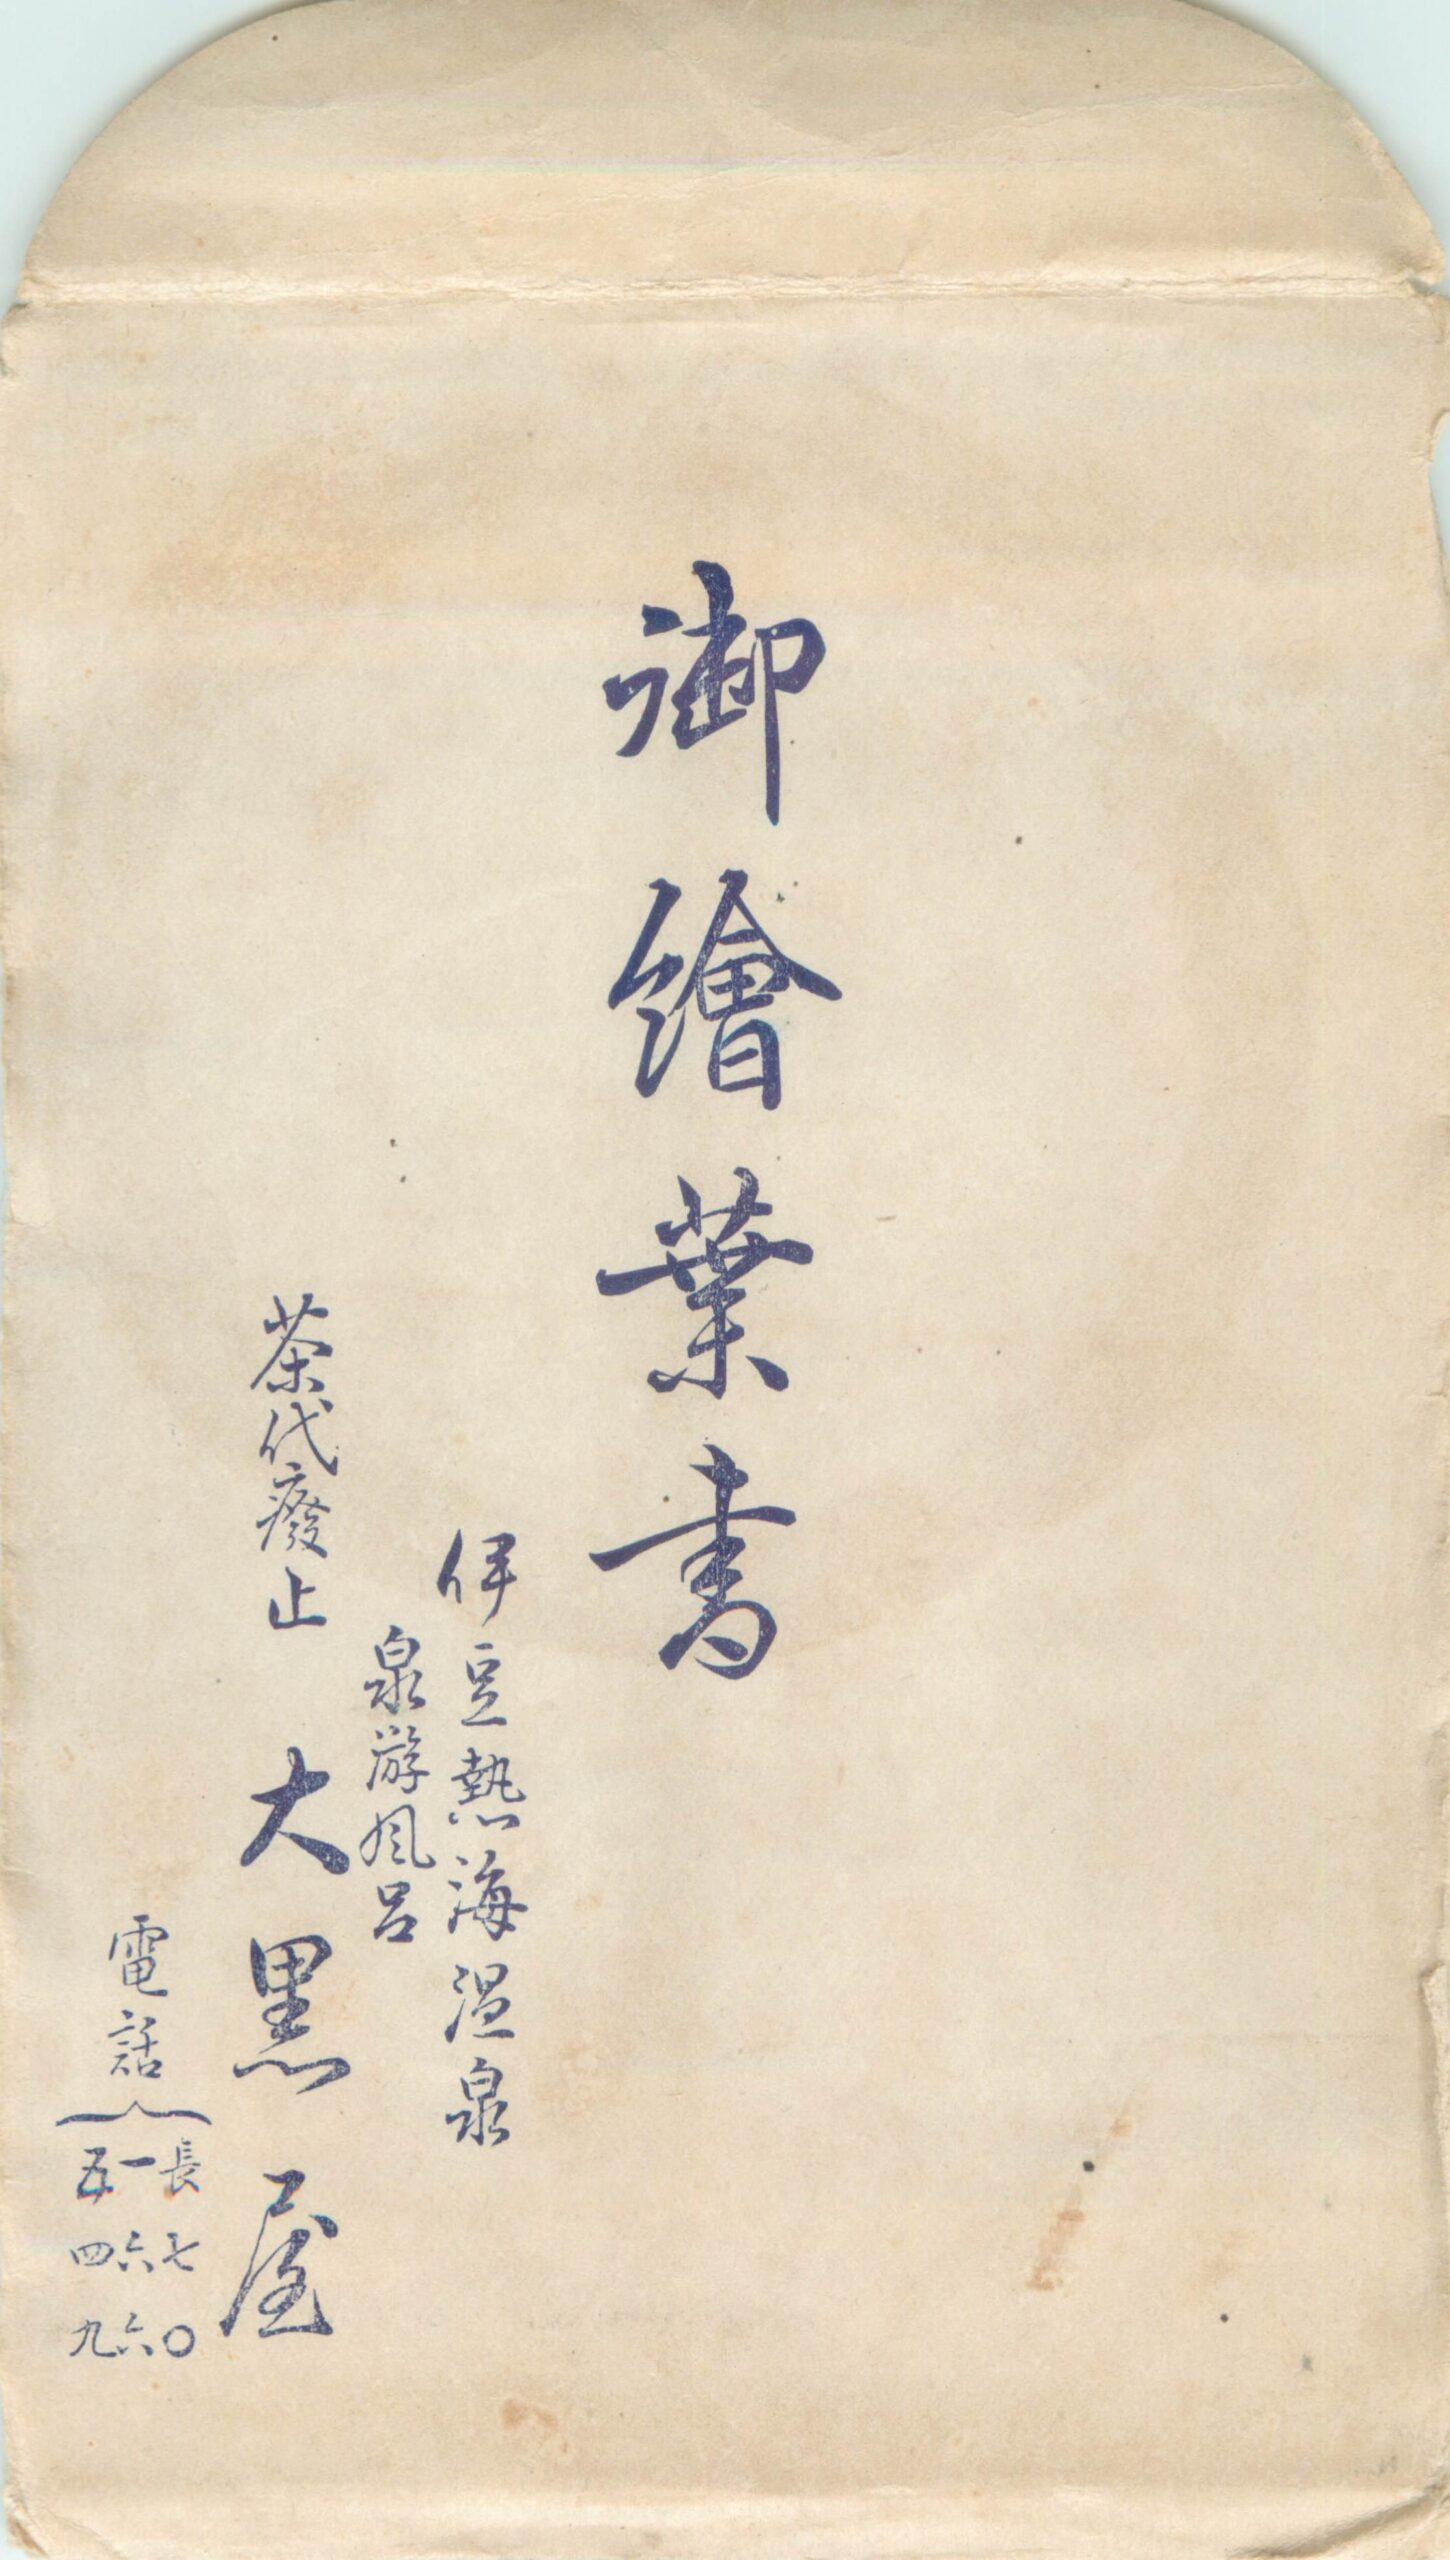 御繪葉書
伊豆熱海温泉
泉游風呂
茶代廢止 大黒屋
電話
長七〇
一六六
五四九